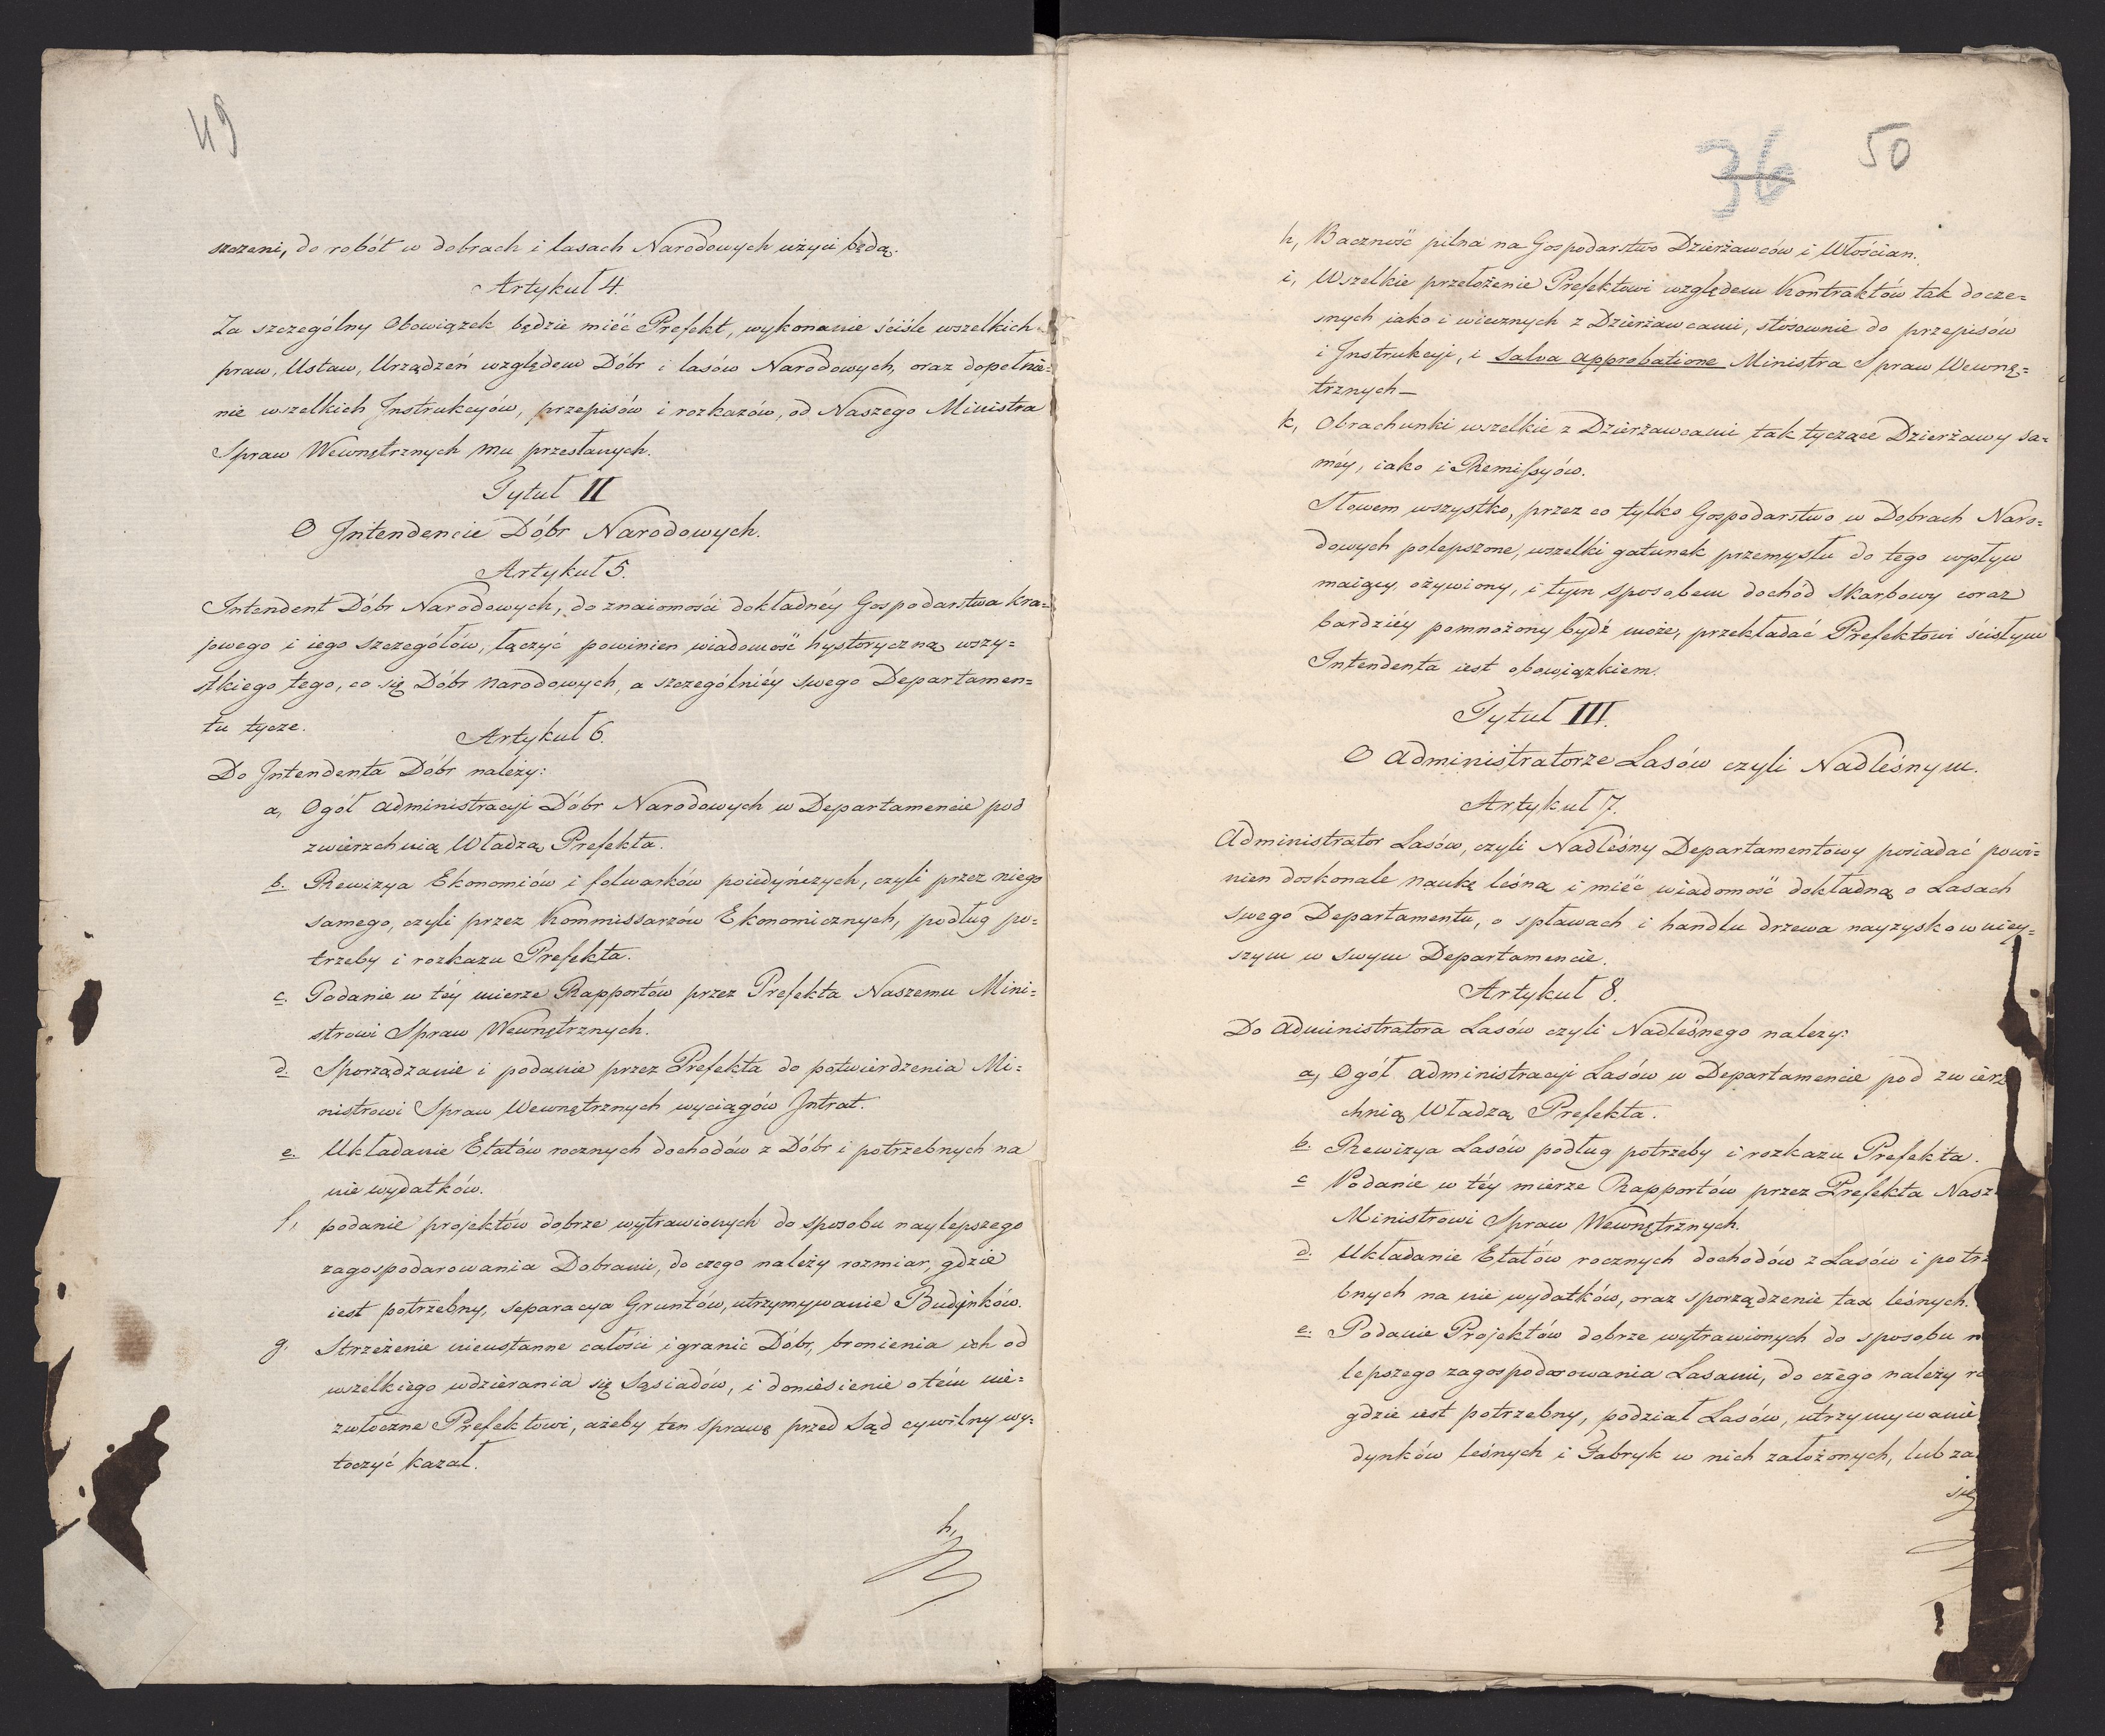 49
szczeni, do robót w dobrach i lasach Narodowych użyci będą.
Artykuł 4.
Za szczególny Obowiązek będzie mieć Prefekt, wykonanie ściśle wszelkich
praw, Ustaw, Urządzeń względem Dóbr i lasów Narodowych, oraz dopełnie=
nie wszelkich Instrukcyów, przepisów i rozkazów, od Naszego Ministra
Spraw Wewnętrznych mu przesłanych.
Tytuł II
O Intendencie Dóbr Narodowych.
Artykuł 5.
Intendent Dóbr Narodowych, do znaiomości dokładnéy Gospodarstwa kra=
jowego i iego szczegółów, łączyć powinien wiadomość hystoryczną wszy=
stkiego tego, co się Dóbr Narodowych, a szczególniéy swego Departamen=
tu tycze.
Artykuł 6.
Do Intendenta Dóbr należy:
a, Ogół administracyi Dóbr Narodowych w Departamencie pod
zwierzchnią Władzą Prefekta.
b. Rewizya Ekonomiów i folwarków poiedyńczych, czyli przez niego
samego, czyli przez Kommissarzów Ekonomicznych, podług po=
trzeby i rozkazu Prefekta.
c. Podanie w téy mierze Rapportów przez Prefekta Naszemu Mini=
strowi Spraw Wewnętrznych.
d. Sporządzanie i podanie przez Prefekta do potwierdzenia Mi=
nistrowi Spraw Wewnętrznych wyciągów Intrat.
e. Układanie Etatów rocznych dochodów z Dóbr i potrzebnych na
nie wydatków.
f, podanie projektów dobrze wytrawionych do sposobu naylepszego
zagospodarowania Dobrami, do czego należy rozmiar, gdzie
iest potrzebny, separacya Gruntów, utrzymywanie Budynków.
g. Strzeżenie nieustanne całości i granic Dóbr, bronienia ich od
wszelkiego wdzierania się Sąsiadów, i doniesienie o tém nie=
zwłoczne Prefektowi, ażeby ten sprawę przed Sąd cywilny wy=
toczyć kazał.
h,
36 50
h, Baczność pilna na Gospodarstwo Dzierżawców i Włościan.
i, Wszelkie przełożenie Prefektowi względem Kontraktów tak docze=
snych iako i wiecznych z Dzierżawcami, stósownie do przepisów
i Instrukcyi, i salva approbatione Ministra Spraw Wewnę=
trznych—
k, Obrachunki wszelkie z Dzierżawcami tak tyczące Dzierżawy sa=
méy, iako i Remissyów.
Słowem wszystko, przez co tylko Gospodarstwo w Dobrach Naro=
dowych polepszone, wszelki gatunek przemysłu do tego wpływ
maiący, ożywiony, i tym sposobem dochód skarbowy coraz
bardziéy pomnożony bydź może, przekładać Prefektowi ścisłym
Intendenta iest obowiązkiem.
Tytuł III.
O Administratorze Lasów czyli Nadleśnym.
Artykuł 7.
Administrator Lasów, czyli Nadleśny Departamentowy posiadać powi=
nien doskonale naukę leśną i mieć wiadomość dokładną o Lasach
swego Departamentu, o spławach i handlu drzewa nayzyskowniey=
szym w swym Departamencie.
Artykuł 8.
Do Administratora Lasów czyli Nadleśnego należy:
a, Ogół administracyi Lasów w Departamencie pod zwierz
chnią Władzą Prefekta.
b. Rewizya Lasów podług potrzeby i rozkazu Prefekta.
c Podanie w téy mierze Rapportów przez Prefekta Nasz
Ministrowi Spraw Wewnętrznych.
d. Układanie Etatów rocznych dochodów z Lasów i potrz
bnych na nie wydatków, oraz sporządzenie tax leśnych.
e. Podanie Projektów dobrze wytrawionych do sposobu n
lepszego zagospodarowania Lasami, do czego należy ro
gdzie iest potrzebny, podział Lasów, utrzymywanie
dynków leśnych i Fabryk w nich założonych, lub za
się